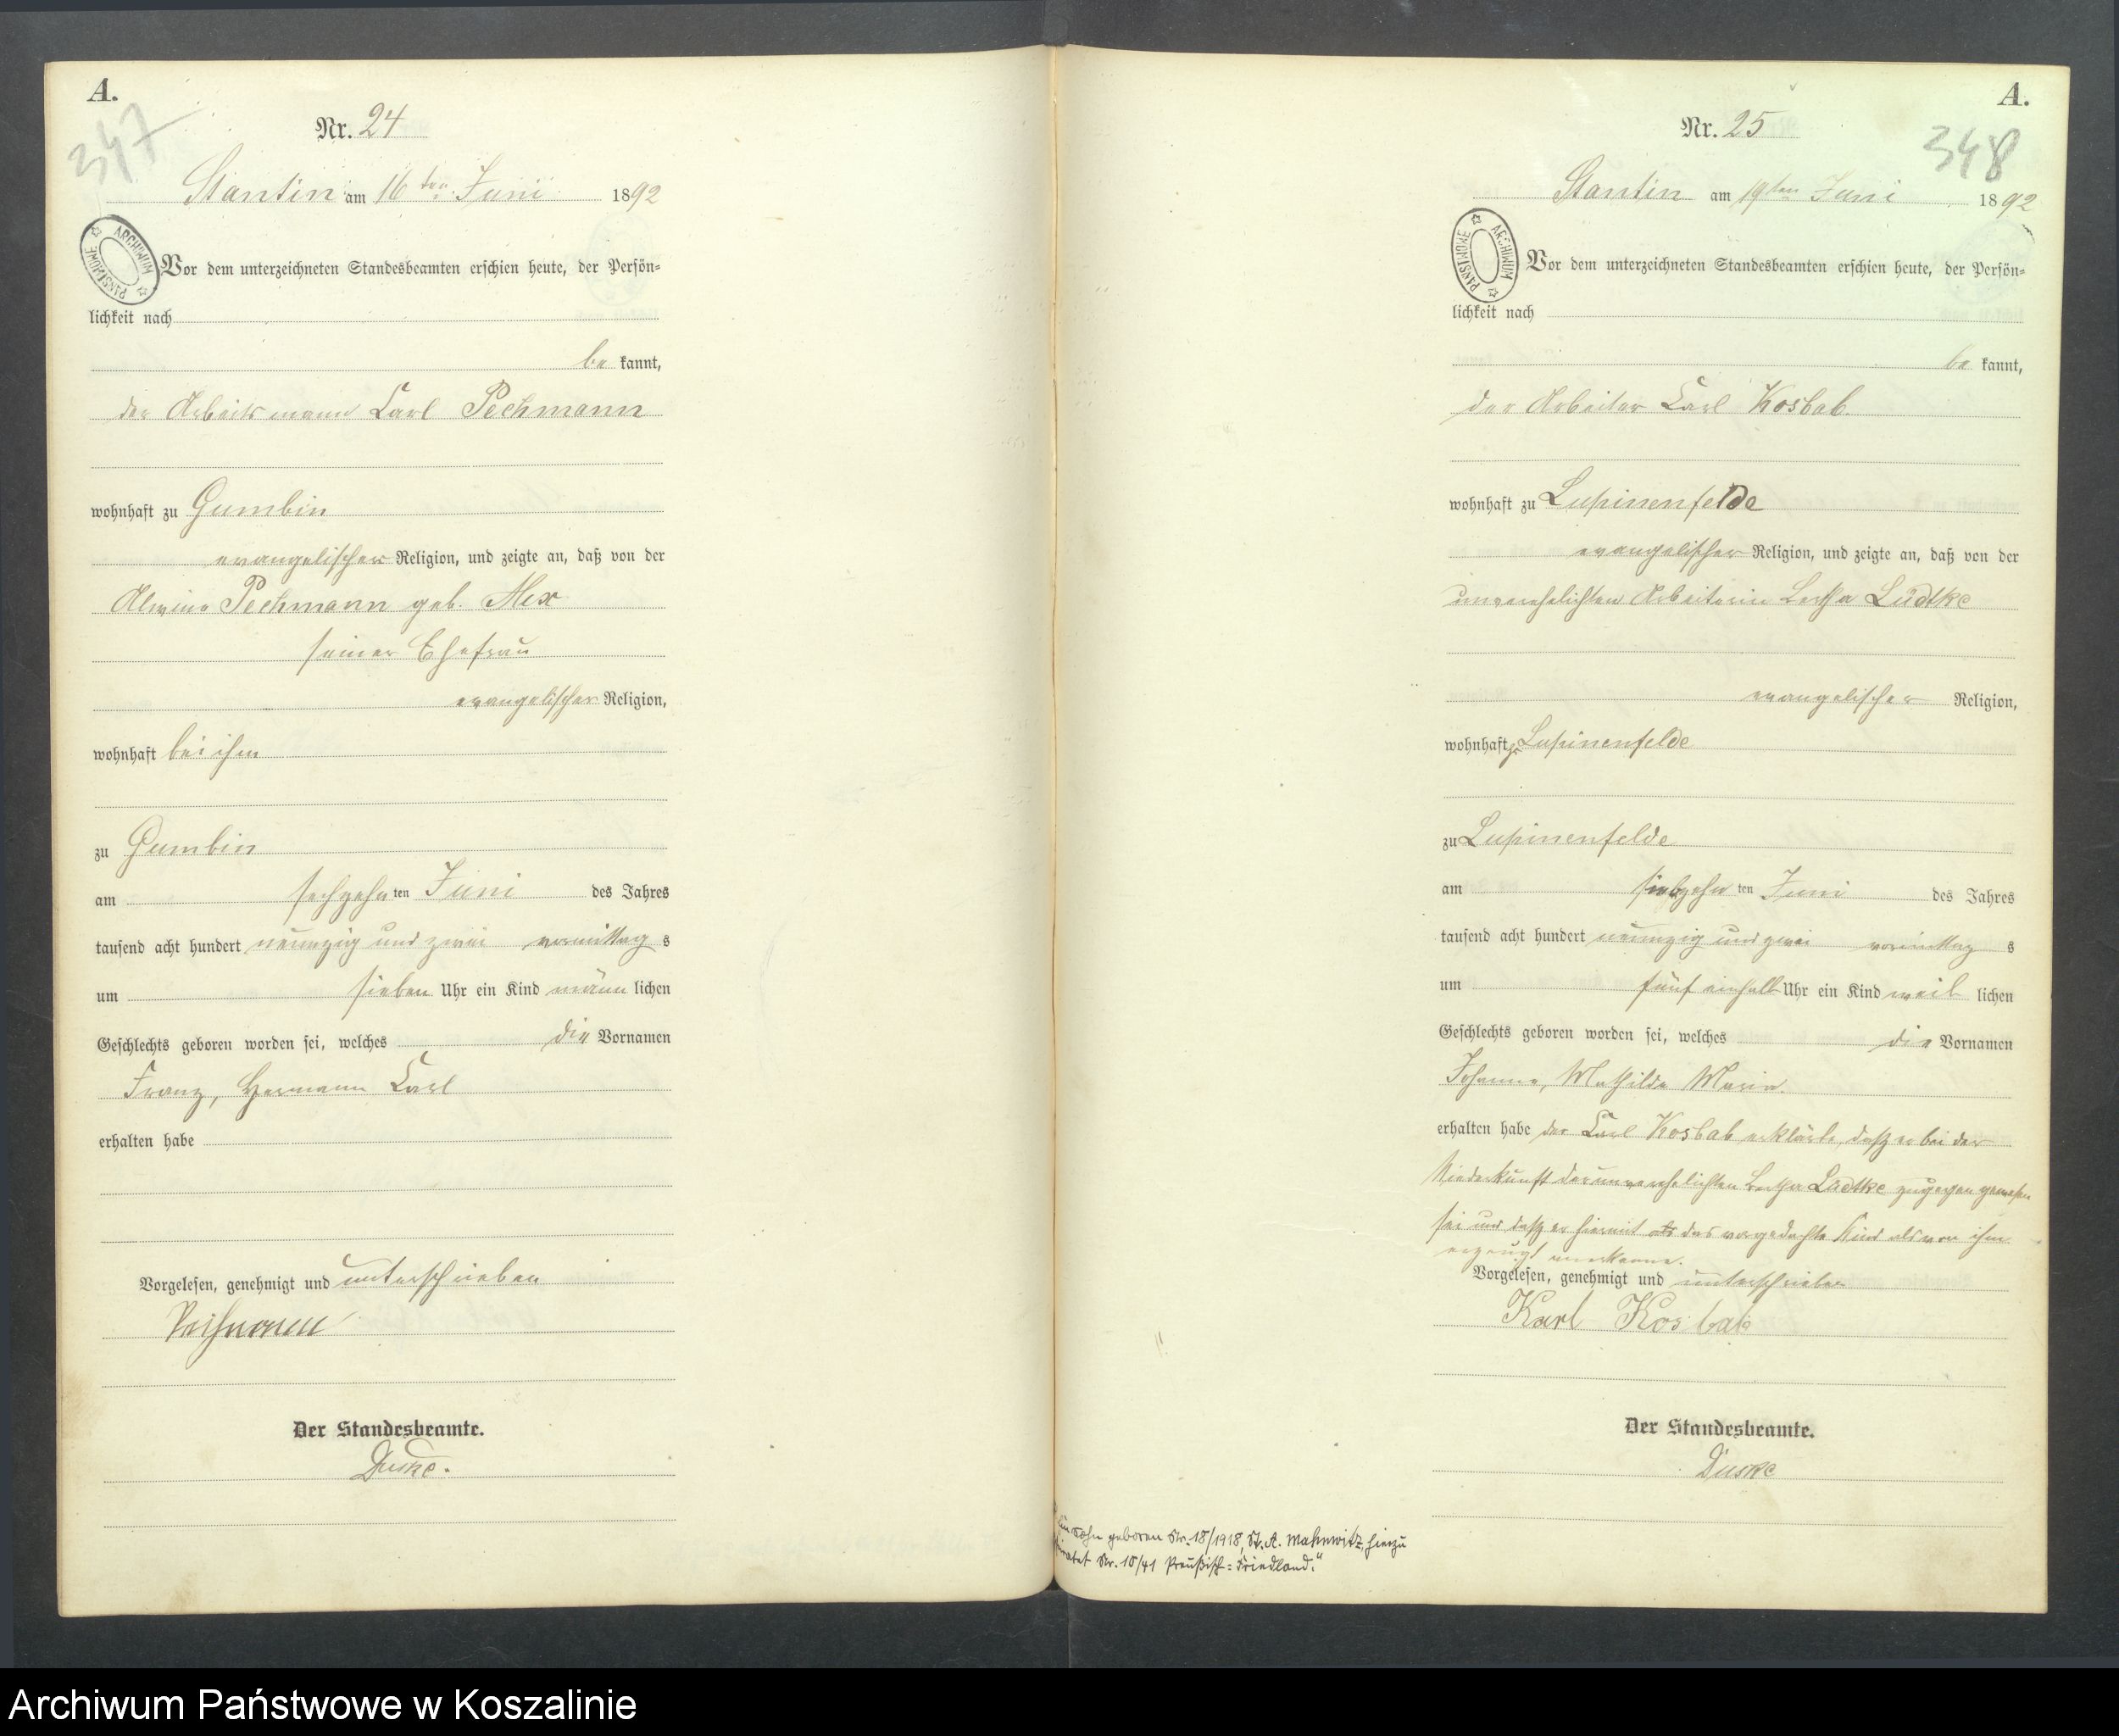 A.
347
Nr. 24
Stantin am 16ten Juni 1892
ARCHIWUM PAŃSTWOWE
Vor dem unterzeichneten Standesbeamten erschien heute, der Persön-
lichkeit nach
be kannt,
der Arbeitsmann Carl Pechmann
wohnhaft zu Gumbin
evangelischer Religion, und zeigte an, daß von der
Alwine Pechmann geb.
seiner Ehefrau
evangelischer Religion,
wohnhaft bei ihm
zu Gumbin
am sechzehn ten Juni des Jahres
tausend acht hundert neunzig und zwei vormittag s
um sieben Uhr ein Kind männ lichen
Geschlechts geboren worden sei, welches die Vornamen
Franz, Hermann Carl
erhalten habe
Vorgelesen, genehmigt und unterschrieben
Der Standesbeamte.
A.
348
Nr. 25
Stantin am 19ten Juni 1892
ARCHIWUM PAŃSTWOWE
Vor dem unterzeichneten Standesbeamten erschien heute, der Persön-
lichkeit nach
be kannt,
der Arbeiter Carl Kosbab
wohnhaft zu Lupinenfelde
evangelischer Religion, und zeigte an, daß von der
unverehelichten Arbeiterin Bertha Lüdtke
evangelischer Religion,
wohnhaft zu Lupinenfelde
zu Lupinenfelde
am siebzehn ten Juni des Jahres
tausend acht hundert neunzig und zwei vormittag s
um fünf einhalb Uhr ein Kind weib lichen
Geschlechts geboren worden sei, welches die Vornamen
Johanna, Mathilde Marie.
erhalten habe der Carl Kosbab erklärte, daß er bei der
Niederkunft der unverehelichten Bertha Lüdtke zugegen gewesen
sei und daß er hiermit das vorgedachte Kind als von ihm
erzeugt anerkenne.
Vorgelesen, genehmigt und unterschrieben
Karl Kosbab
Der Standesbeamte.
Sohn geboren Nr. 18/1918, St. A. Mahnwitz, hierzu
Nr. 10/41 Preußisch-Friedland."
Archiwum Państwowe w Koszalinie